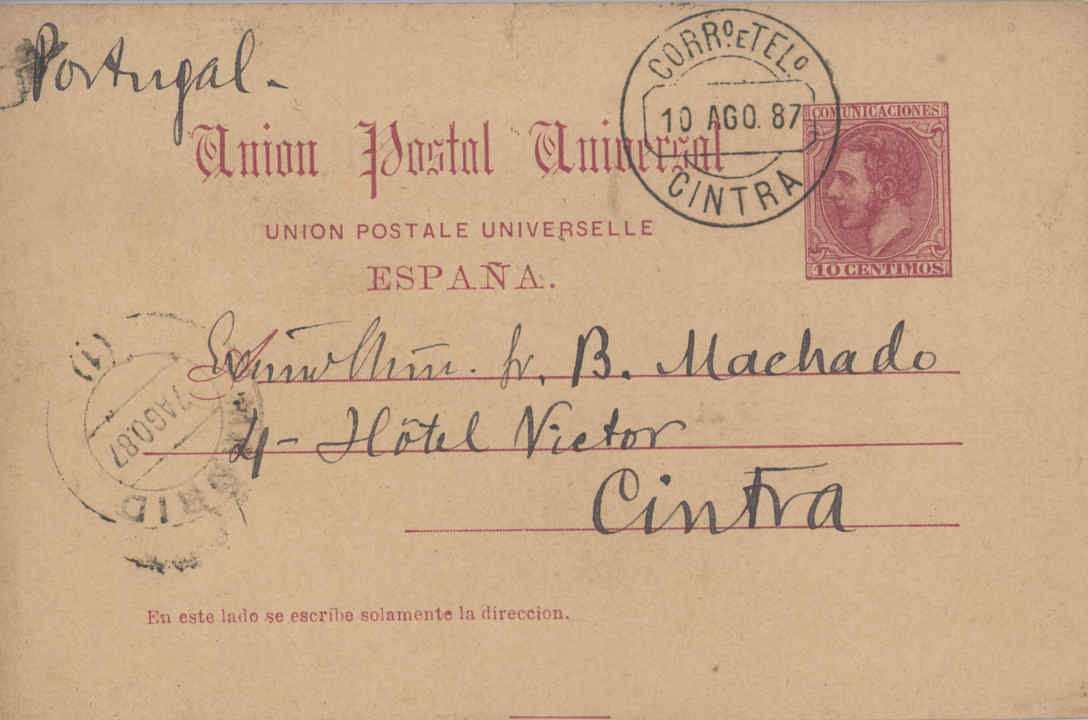 Portugal.
CORRº E TELº
10 AGO. 87
CINTRA
COMUNICACIONES
10 CENTIMOS
Union Postal Universal
UNION POSTALE UNIVERSELLE
ESPAÑA.
(1)
7 AGO 87
B. Machado
4- Hôtel Victor
Cintra
En este lado se escribe solamente la direccion.